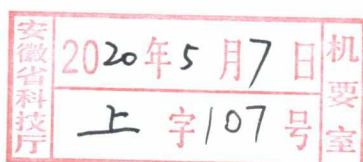 安徽省科技厅
2020年5月7日
上字107号
机要室